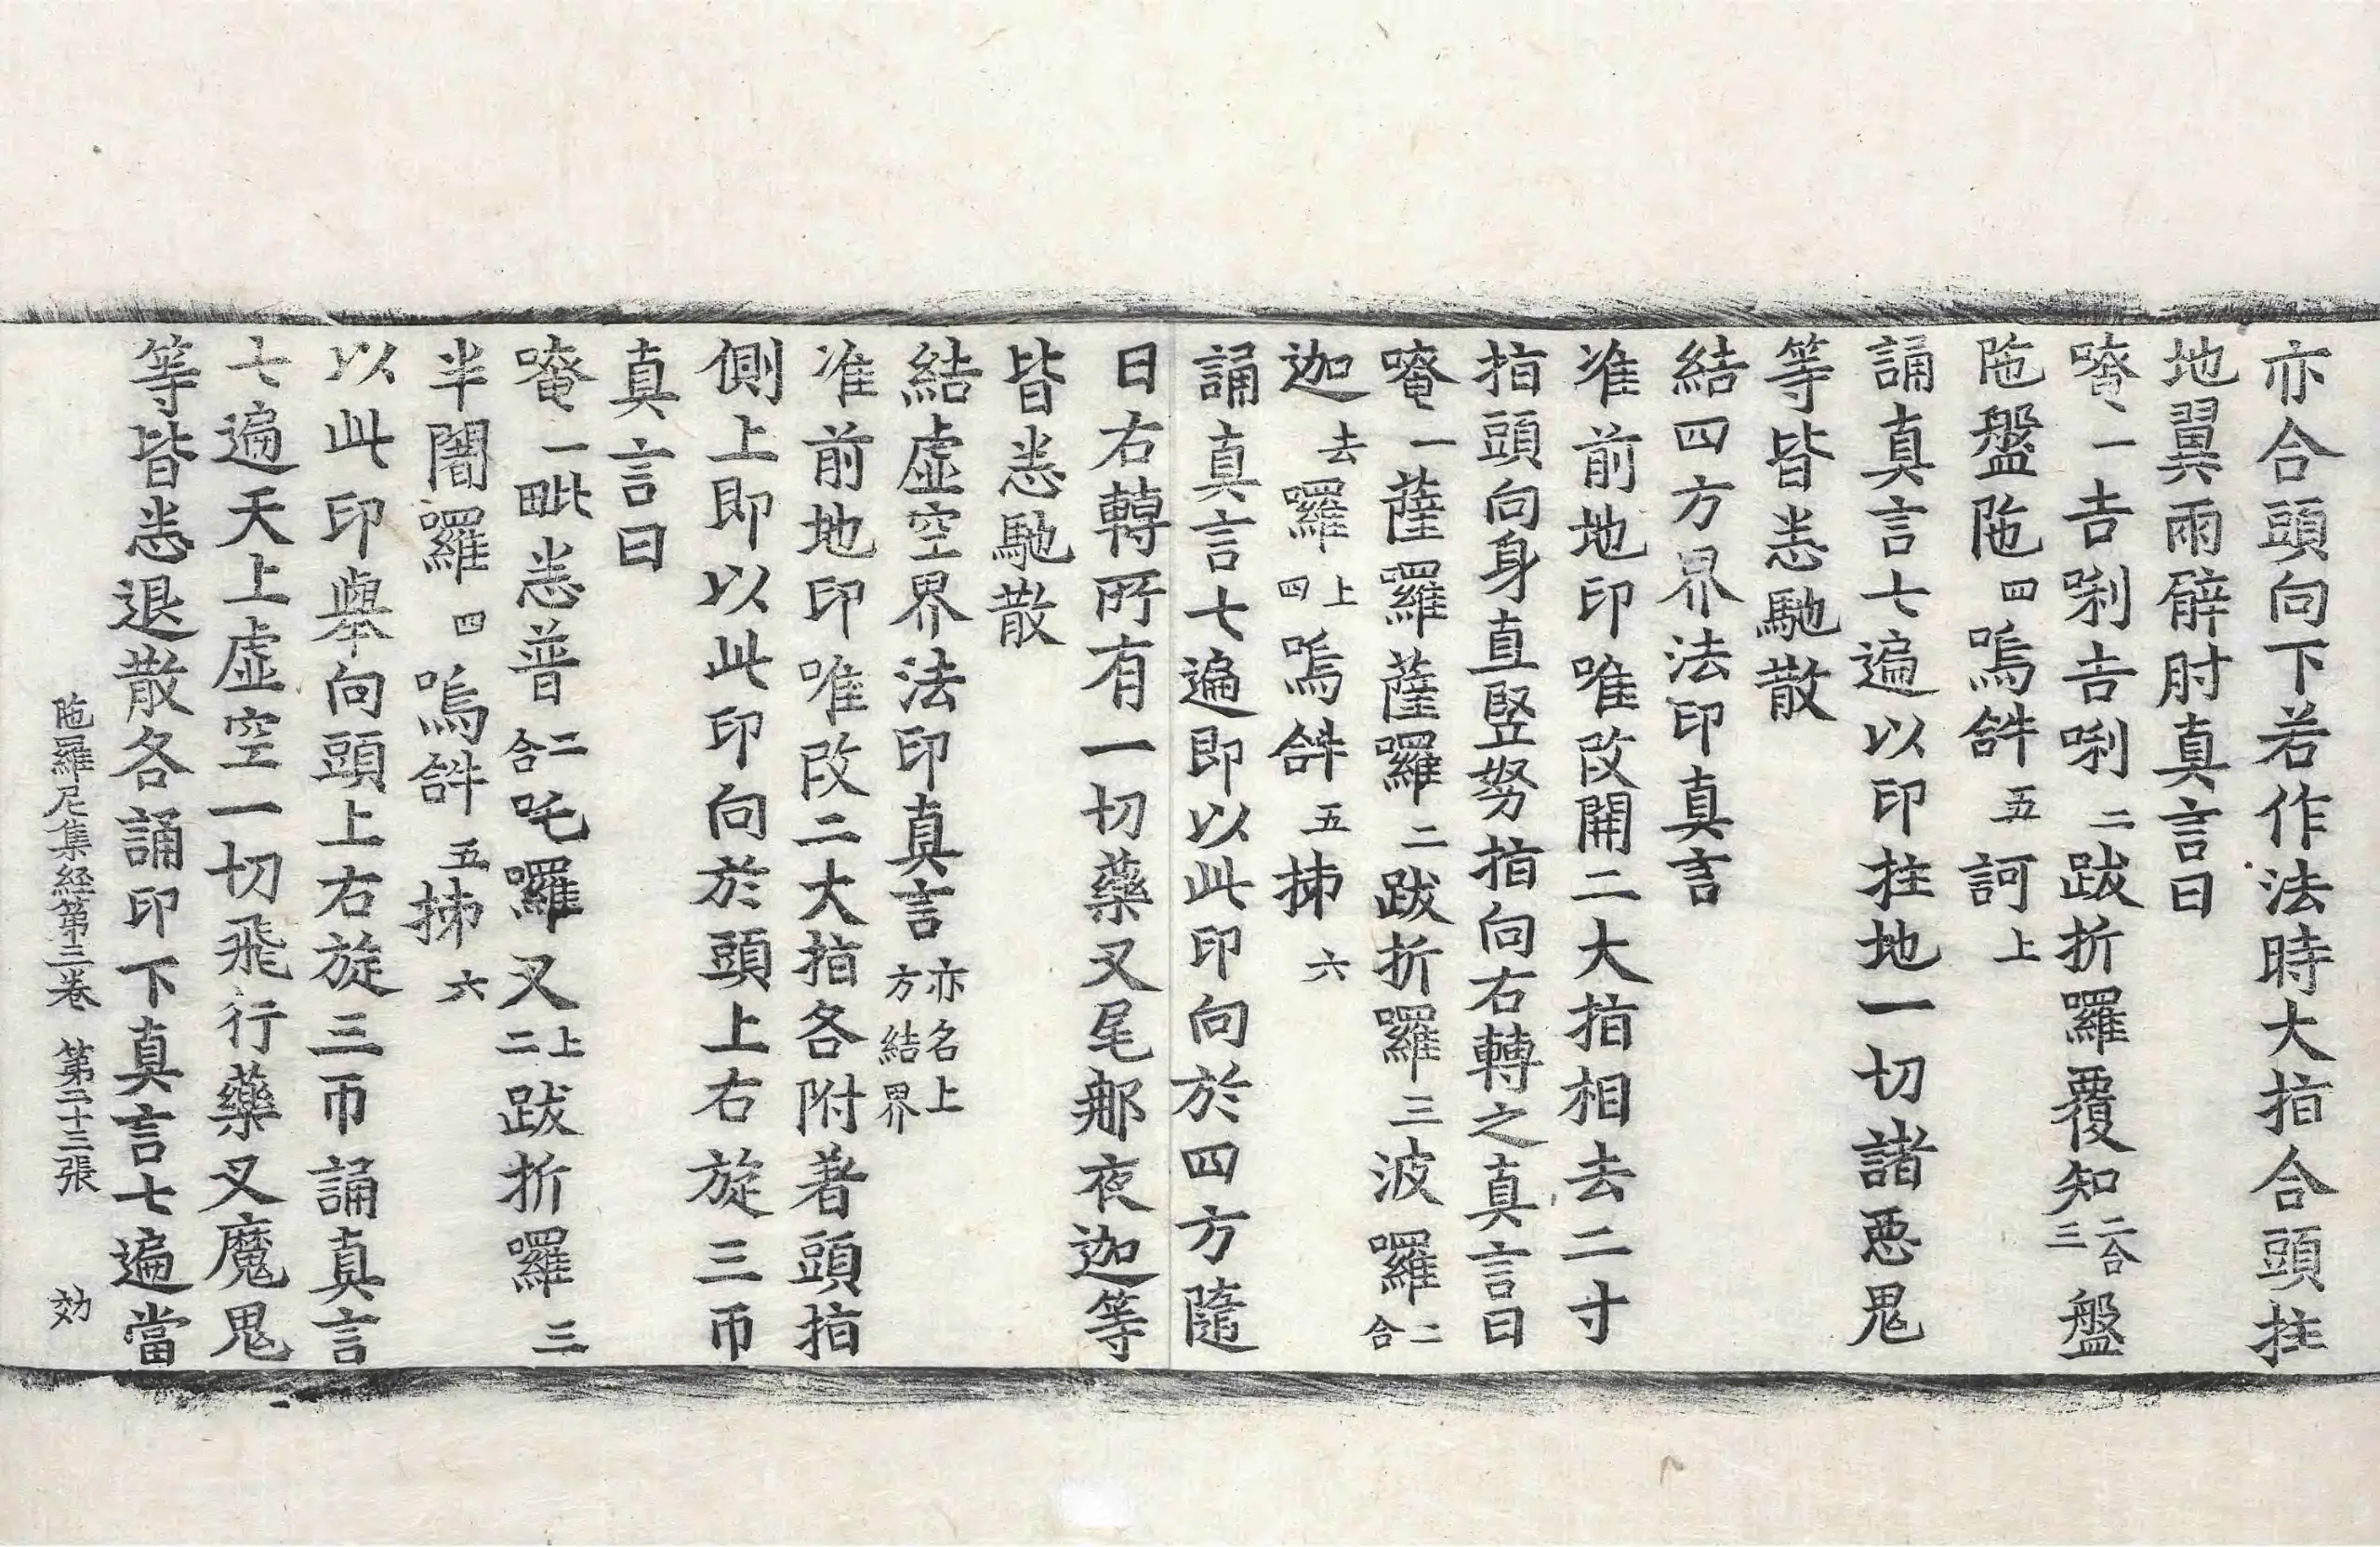 亦合頭向下若作法時大指合頭拄
地翼兩臂肘真言曰
唵一𠮷唎𠮷唎二跋折羅覆知二合三盤
陁盤陁四嗚𤙖五訶上
誦真言七遍以印拄地一切諸惡鬼
等皆悉馳散
結四方界法印真言
准前地印唯改開二大指相去二寸
指頭向身直竪努指向右轉之真言曰
唵一薩羅薩囉二跋折羅三波囉二合
迦去囉上四嗚𤙖五㧊六
誦真言七遍即以此印向於四方隨
日右轉所有一切藥叉尾那夜迦等
皆悉馳散
結虛空界法印真言亦名上方結界
准前地印唯改二大指各附著頭指
側上即以此印向於頭上右旋三帀
真言曰
唵一毗悉普二合吒囉叉上二跋折囉三
半闍囉四嗚𤙖五㧊六
以此印舉向頭上右旋三帀誦真言
七遍天上虛空一切飛行藥叉魔鬼
等皆悉退散各誦印下真言七遍當
陁羅尼集經第三卷 第二十三張 効